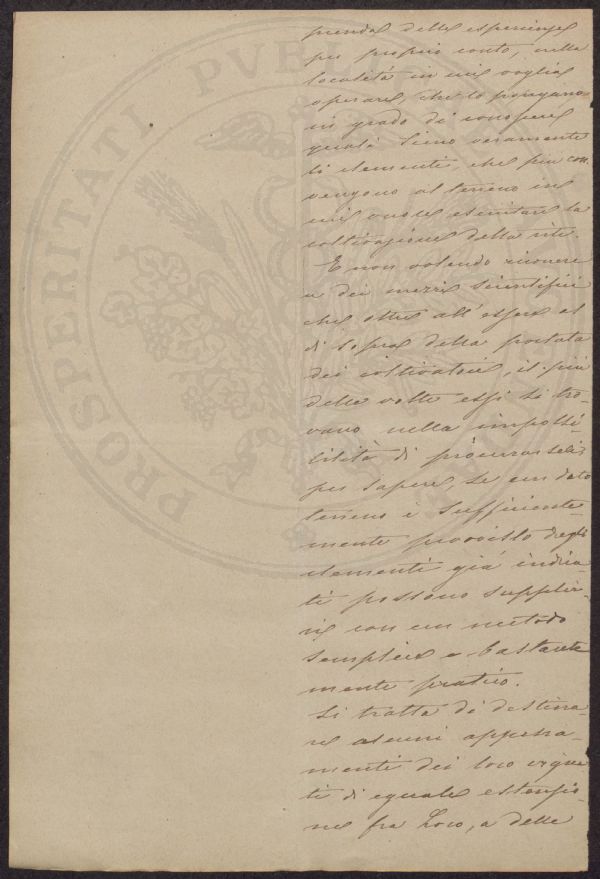 prenda delle esperienze
per proprio conto, nella
località in cui voglia
operare, che lo pongano
in grado di conoscere
quali sieno veramente
li elementi, che più con
vengono al terreno in
cui vuole esercitare la
coltivazione della vite.
E non volendo ricorrere
a dei mezzi scientifici
che oltre all'essere al
di sopra della portata
dei coltivatori, il più
delle volte essi si tro-
vano nella impossi-
bilità di procurarseli,
per sapere, se un dato
terreno è sufficiente
mente provvisto degli
elementi già indica-
ti possono supplir-
vi con un metodo
semplice e bastante
mente pratico.
Si tratta di destina-
re alcuni appezza-
menti dei loro vigne
ti di eguale estensio
ne fra loro, a delle
PROSPERITATI PVBLI